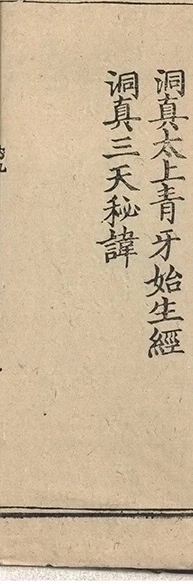 洞真太上青牙始生經
洞真三天秘諱